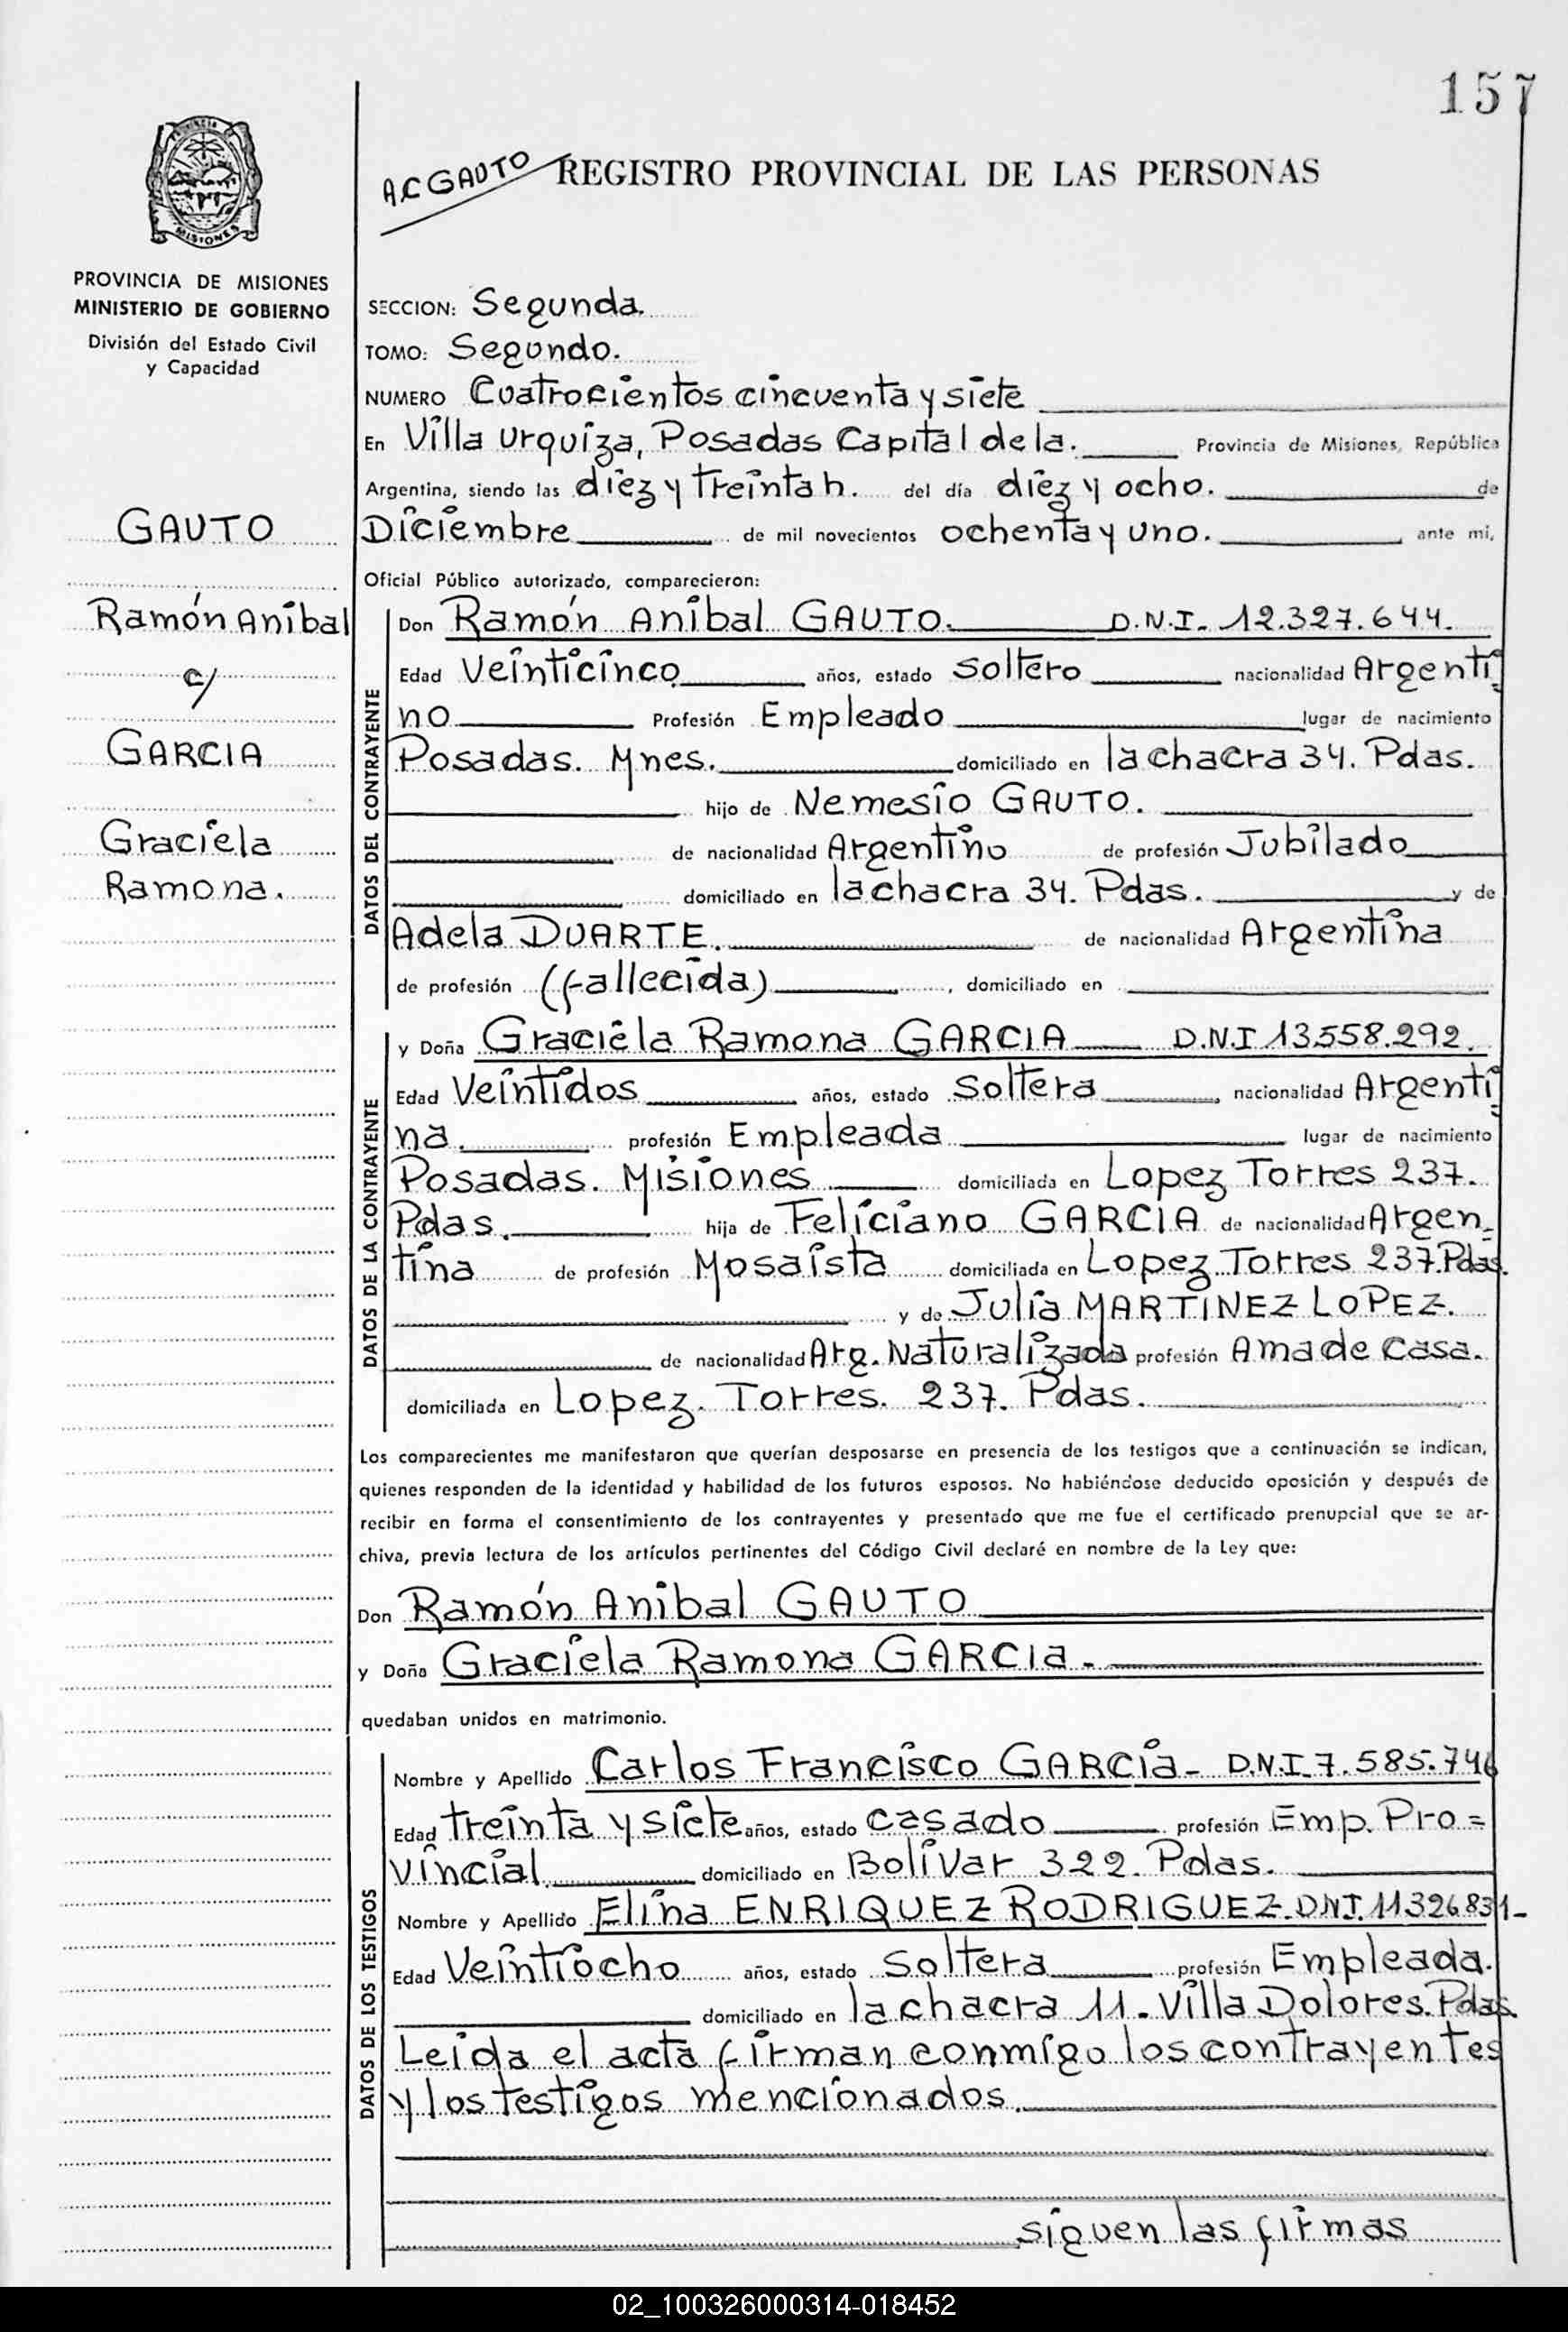 157
A.C GAUTO REGISTRO PROVINCIAL DE LAS PERSONAS
PROVINCIA DE MISIONES
MINISTERIO DE GOBIERNO
División del Estado Civil
y Capacidad
GAUTO
Ramón Aníbal
c/
GARCIA
Graciela
Ramona.
SECCION: Segunda.
TOMO: Segundo.
NUMERO Cuatrocientos cincuenta y siete
En Villa Urquiza, Posadas Capital de la. Provincia de Misiones, República
Argentina, siendo las diez y treinta h. del día diez y ocho. de
Diciembre de mil novecientos ochenta y uno. ante mi,
Oficial Público autorizado, comparecieron:
DATOS DEL CONTRAYENTE
Don Ramón Aníbal GAUTO. D.N.I. 12.327.644.
Edad Veinticinco años, estado Soltero nacionalidad Argenti
no Profesión Empleado lugar de nacimiento
Posadas. Mnes. domiciliado en la chacra 34. Pdas.
hijo de Nemesio GAUTO.
de nacionalidad Argentino de profesión Jubilado
domiciliado en la chacra 34. Pdas. y de
Adela DUARTE. de nacionalidad Argentina
de profesión (fallecida), domiciliado en
DATOS DE LA CONTRAYENTE
y Doña Graciela Ramona GARCIA D.N.I 13558.292.
Edad Veintidos años, estado Soltera, nacionalidad Argenti
na. profesión Empleada lugar de nacimiento
Posadas. Misiones domiciliada en Lopez Torres 237.
Pdas. hija de Feliciano GARCIA de nacionalidad Argen=
tina de profesión Mosaista domiciliada en Lopez Torres 237. Pdas.
y de Julia MARTINEZ LOPEZ.
de nacionalidad Arg. Naturalizada profesión Ama de casa.
domiciliada en Lopez. Torres. 237. Pdas.
Los comparecientes me manifestaron que querían desposarse en presencia de los testigos que a continuación se indican,
quienes responden de la identidad y habilidad de los futuros esposos. No habiéndose deducido oposición y después de
recibir en forma el consentimiento de los contrayentes y presentado que me fue el certificado prenupcial que se ar-
chiva, previa lectura de los artículos pertinentes del Código Civil declaré en nombre de la Ley que:
Don Ramón Anibal GAUTO
y Doña Graciela Ramona GARCIA.
quedaban unidos en matrimonio.
DATOS DE LOS TESTIGOS
Nombre y Apellido Carlos Francisco GARCIA- D.N.I. 7.585.746
Edad treinta y siete años, estado casado profesión Emp. Pro=
vincial. domiciliado en Bolívar 322. Pdas.
Nombre y Apellido Elina ENRIQUEZ RODRIGUEZ. D.N.I. 11326831-
Edad Veintiocho años, estado Soltera profesión Empleada.
domiciliado en la chacra 11. Villa Dolores. Pdas.
Leida el acta firman conmigo los contrayentes
y los testigos mencionados.
siguen las firmas
02_100326000314-018452